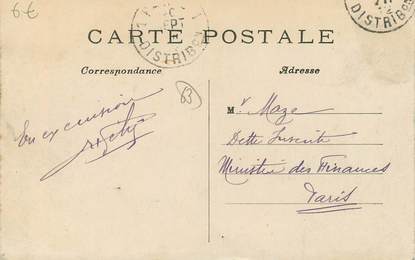 6€
SEPT
DISTRIBon
DISTRIBon
CARTE POSTALE
Correspondance
Adresse
83
En excursion
Mr Maze
Dette Inscrite
Ministère des Finances
Paris